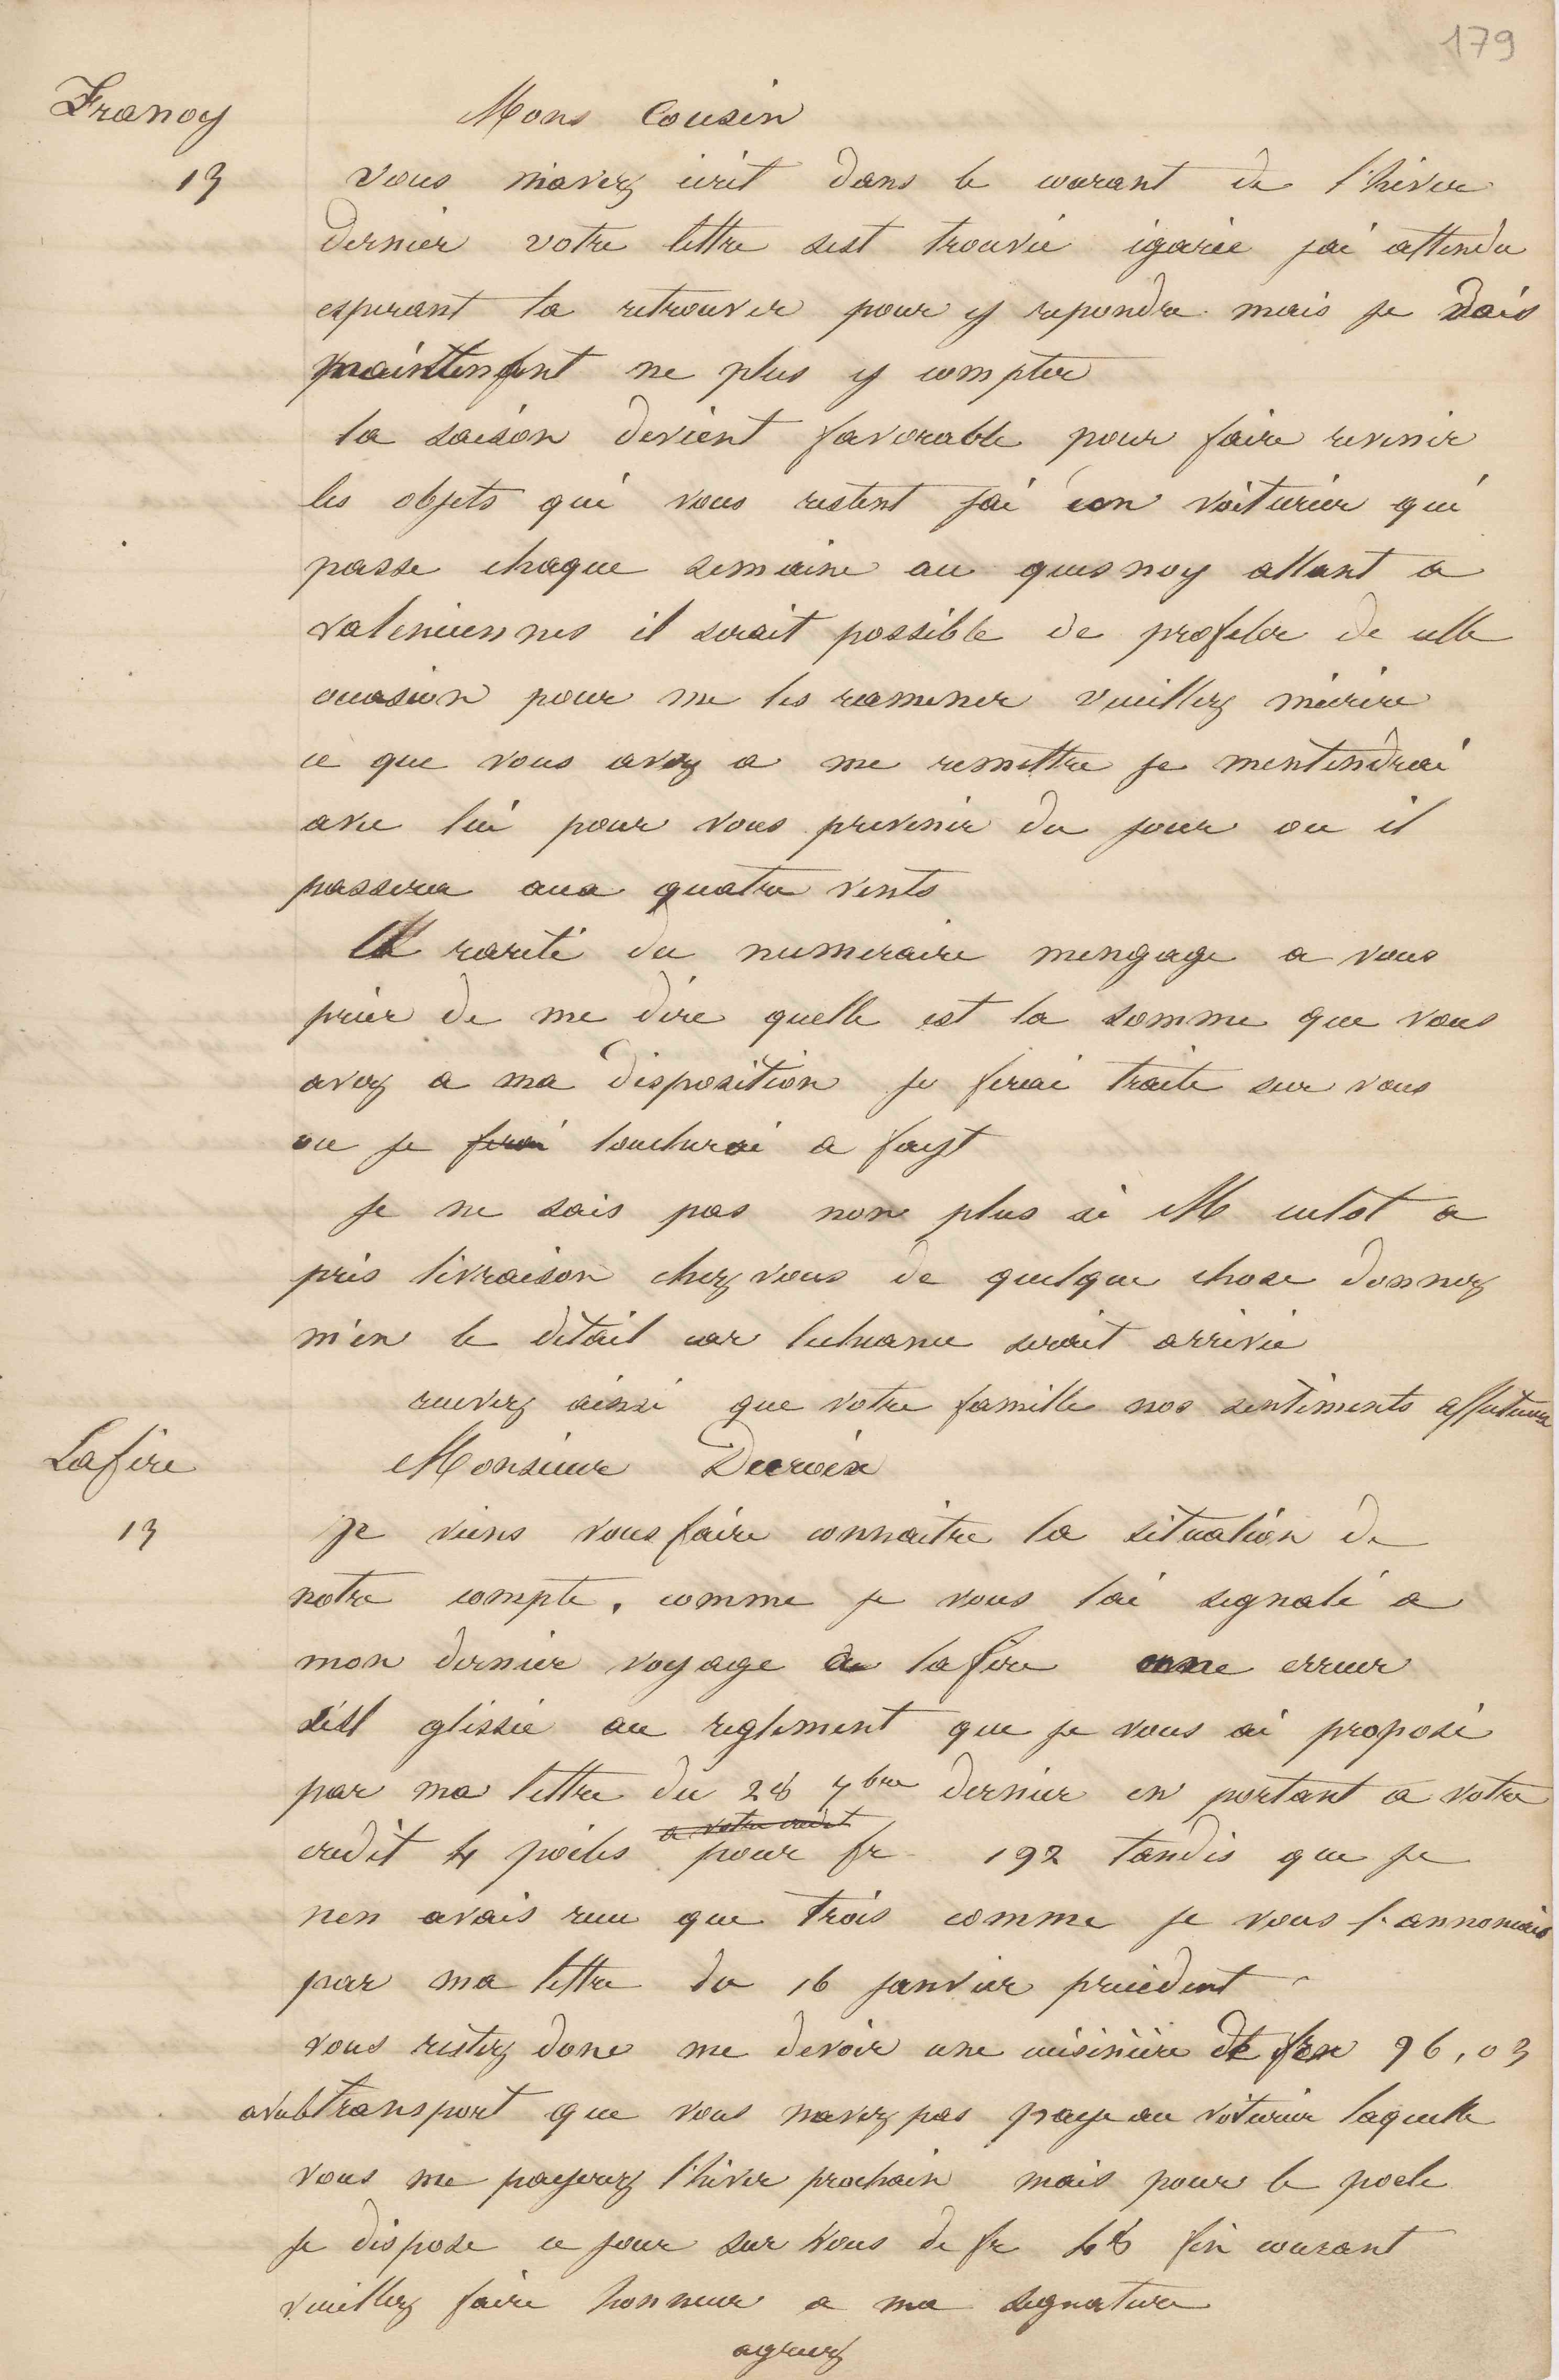 179
Franoy
Mons Cousin
13
vous m'avez écrit dans le courant de l'hiver
dernier votre lettre sest trouvée igarée jai attendu
esperant la retrouver pour y repondre mais je dois
maintenant ne plus y compter
la saison devient favorable pour faire revenir
les objets qui vous restent jai un voiturier qui
passe chaque semaine au quesnoy allant a
valenciennes il serait possible de profiter de cette
occasion pour me les ramener veuillez mécrire
ce que vous avez a me remettre je mentendrai
avec lui pour vous prevenir du jour ou il
passera aux quatre vents
la rareté du numeraire mengage a vous
prier de me dire quelle est la somme que vous
avez a ma disposition je ferai traite sur vous
ou je ferai toucherai a fayt
je ne sais pas non plus si M culot a
pris livraison chez vous de quelque chose donnez
m'en le détail car lecheance serait arrivée
recevez ainsi que votre famille nos sentiments affectueux
Lafère
Monsieur Decroix
13
je viens vous faire connaitre la situation de
notre compte. comme je vous lai signalé a
mon dernier voyage a lafère une erreur
s'est glissée au reglement que je vous ai proposé
par ma lettre du 28 7bre dernier en portant a votre
a votre credit
credit 4 poêles pour fr 192 tandis que je
nen avais recu que trois comme je vous l'annoncais
par ma lettre du 16 janvier précédent
vous restez donc me devoir une cuisinière de fr 96,03
avec le transport que vous navez pas payé au voiturier laquelle
vous me payerez l'hiver prochain mais pour le poele
je dispose ce jour sur vous de fr 48 fin courant
veuillez faire honneur a ma signature
agreez